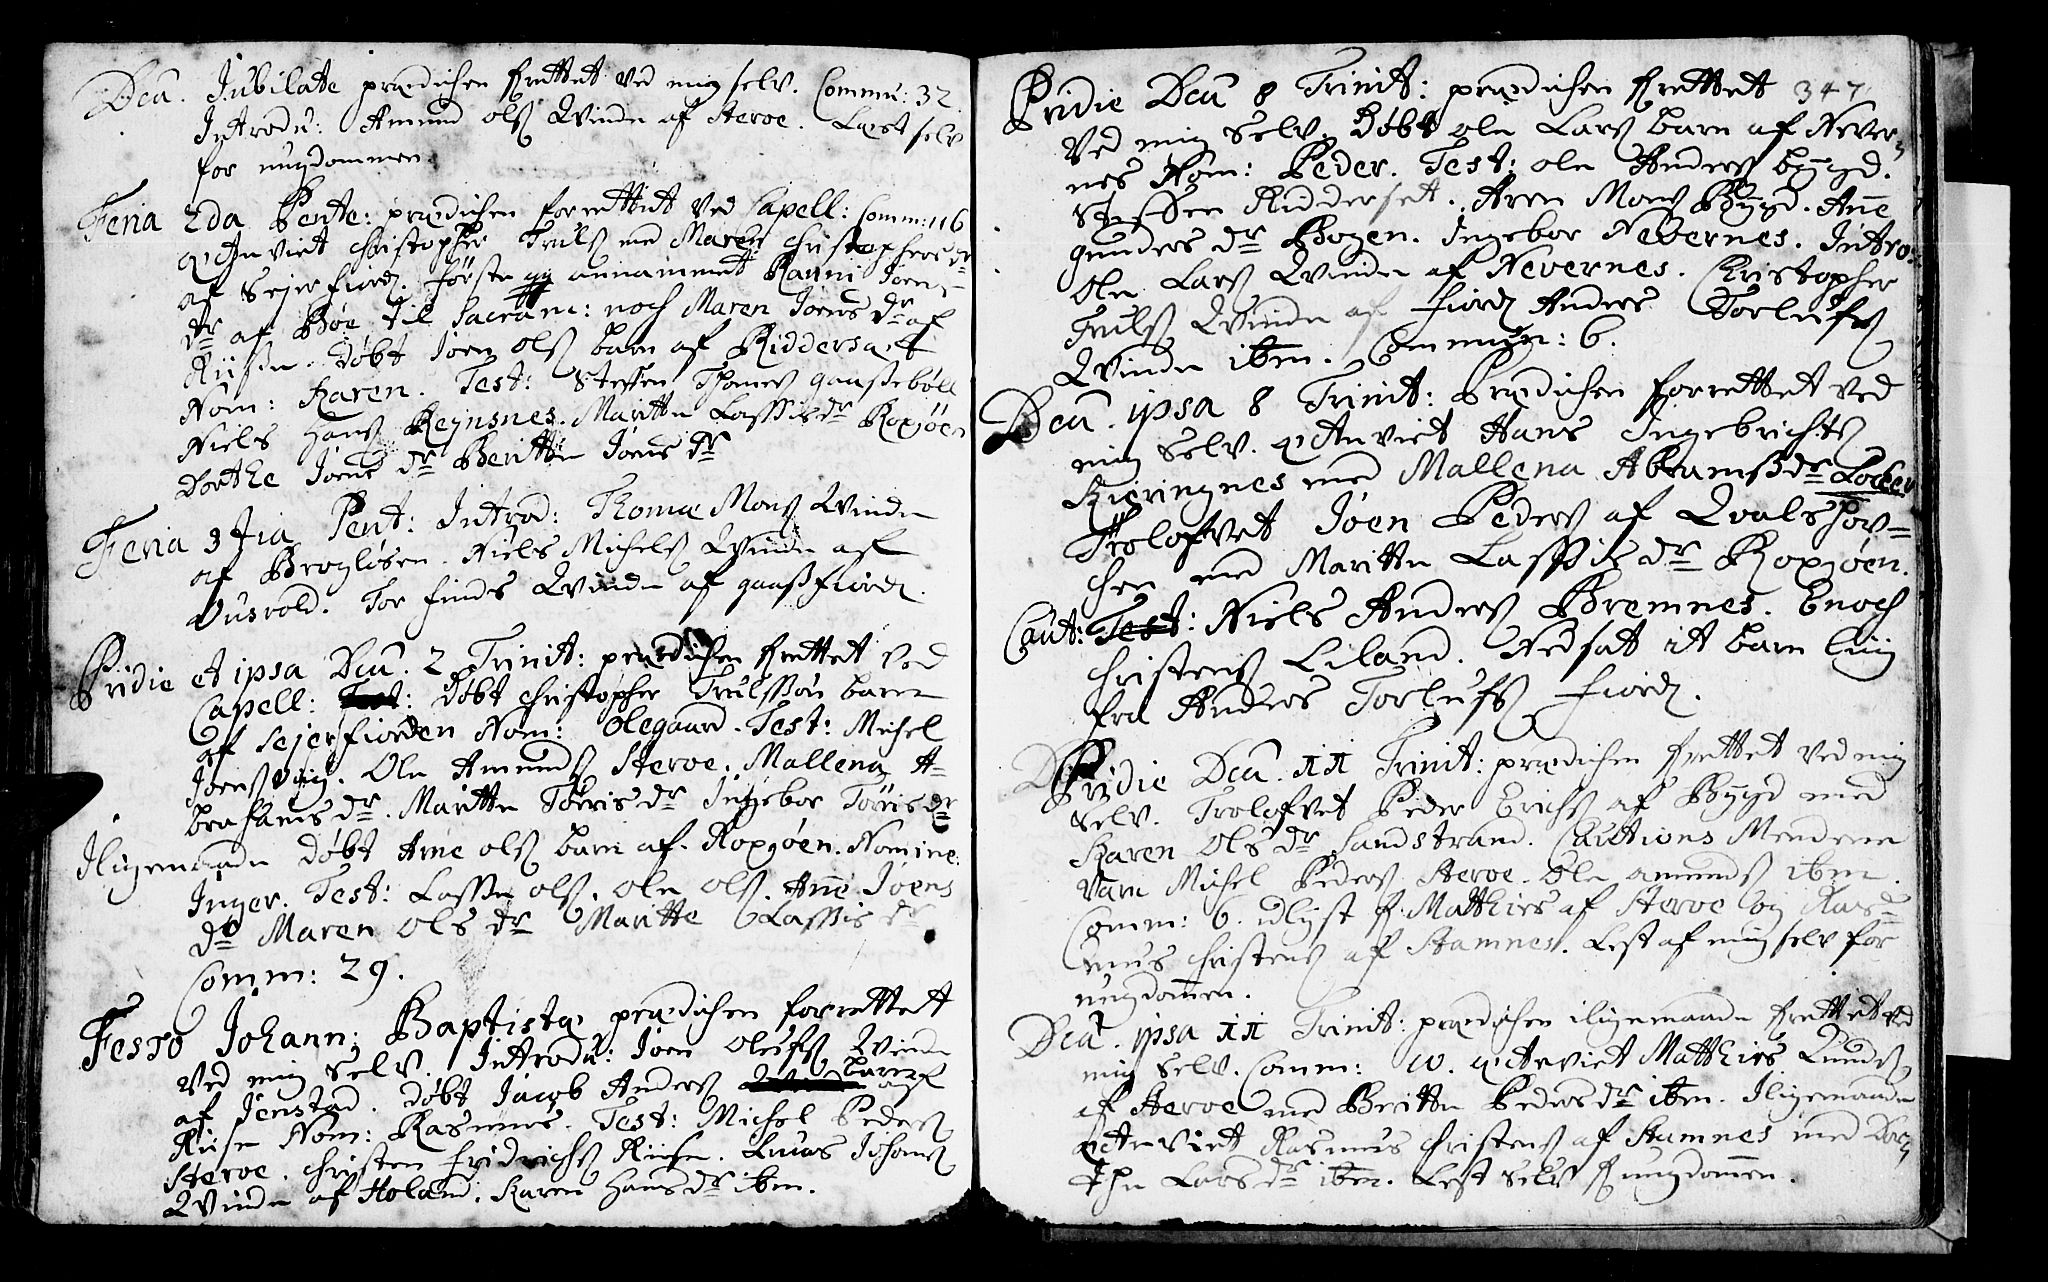 Dca. Jubilate prædichen frettet ved mig selv. Commu: 32.
Introdu: Amund olß Qvinde af Steroe. Læst selv
for ungdommen.
Feria 2da Pente: prædichen forrettet ved Capell: Comm: 116
Christopher Trulß med Maren Christophersdr
af Sejerfiord. første gg annammet Ranni Joens
dr af Bøe til Sacram: noch Maren Joens dr af
Riise. Døbt Joen olß barn af Riddersæt
Nom: Karen. Test: Steffen Thomeß gaassebøll
Niels Hanß Reynsnes. Maritte Lassis dr Roxøen
Dorthe Joens dr Beritte Joens dr
Feria 3tia Pent: Introd: Thomæ Monß Qvinde
af Brogløsen. Niels Michelß Qvinde af
Husvold. Tor finds Qvinde af gaasfiord.
Pridie et ipsa Dca. 2 Trinit: prædichen frettet ved
Capell: Døbt Christopher Trulssøn barn
af Sejerfiorden Nom: Olegaard. Test: Michel
Joenß Ole Amundß Steroe. Mallena A-
brahams dr. Maritte Torris dr Ingebor Torris dr
Iligemaade Døbt Arne olß barn af Roxøen. Nomine:
Inger. Test: Lasse olß. ole olß. Añe Joens
dr Maren Ols dr Maritte Lassis dr
Comm: 29.
Festo Johann: Baptistæ prædichen forrettet
ved mig selv. Introdu: Joen Olufß Qvinde
af Jenstad. Døbt Jacob Anderß barn af
Riise Nom: Rasmus. Test: Michel Pederß
Steroe. Christen fridrichß Riise. Lucas
Qvinde af Holand. Karen Hans dr ibm.
347
Pridie Dca 8 Trinit: prædichen frettet
ved mig selv. Døbt ole Larß barn af Never-
nes Nom: Peder. Test: ole Anderß bygd.
Steffen Ridderset. Aren Monß Bygd. Añe
gunders dr Bogen. Ingebor Nevernes. Intro:
Ole Larß Qvinde af Nevernes. Christopher
Trulß Qvinde af fiord Anders Torlufß
Qvinde ibm. Commun: 6.
Dca. ipsa 8 Trinit: Prædichen forrettet ved
mig selv. Hans Ingebrichtß
Kieringnes med Mallena Abramsdr
Trolofvet Joen Pederß af Qvalshov-
hen med Maritte Lassis dr Roxøen.
Caut: Test: Niels Anderß Bremnes. Enoch
Christenß Liland. Nedsat it barn liig
fra Anders Torlufß fiord.
Pridie Dca. 11 Trinit: prædichen frettet ved mig
selv. Trolofvet Peder Erichß af Bygd med
Karen Ols dr Sandstrand. Cautions Mendene
vare Michel Pederß Steroe. Ole amundß ibm.
Comm: 6. idlyst f. Mathies af Steroe og Ras-
mus Christenß af Stamnes. Lest af mig selv for
ungdomen.
Dca. ipsa 11 Trinit: prædichen iligemaade frettet ved
mig selv. Comm: 10. Matthies
af Steroe med Beritte Peders dr ibm. Iligemaade
Rasmus Christenß af Stamnes med Dor-
the Lars dr ibm. Lest selv f ungdomen.